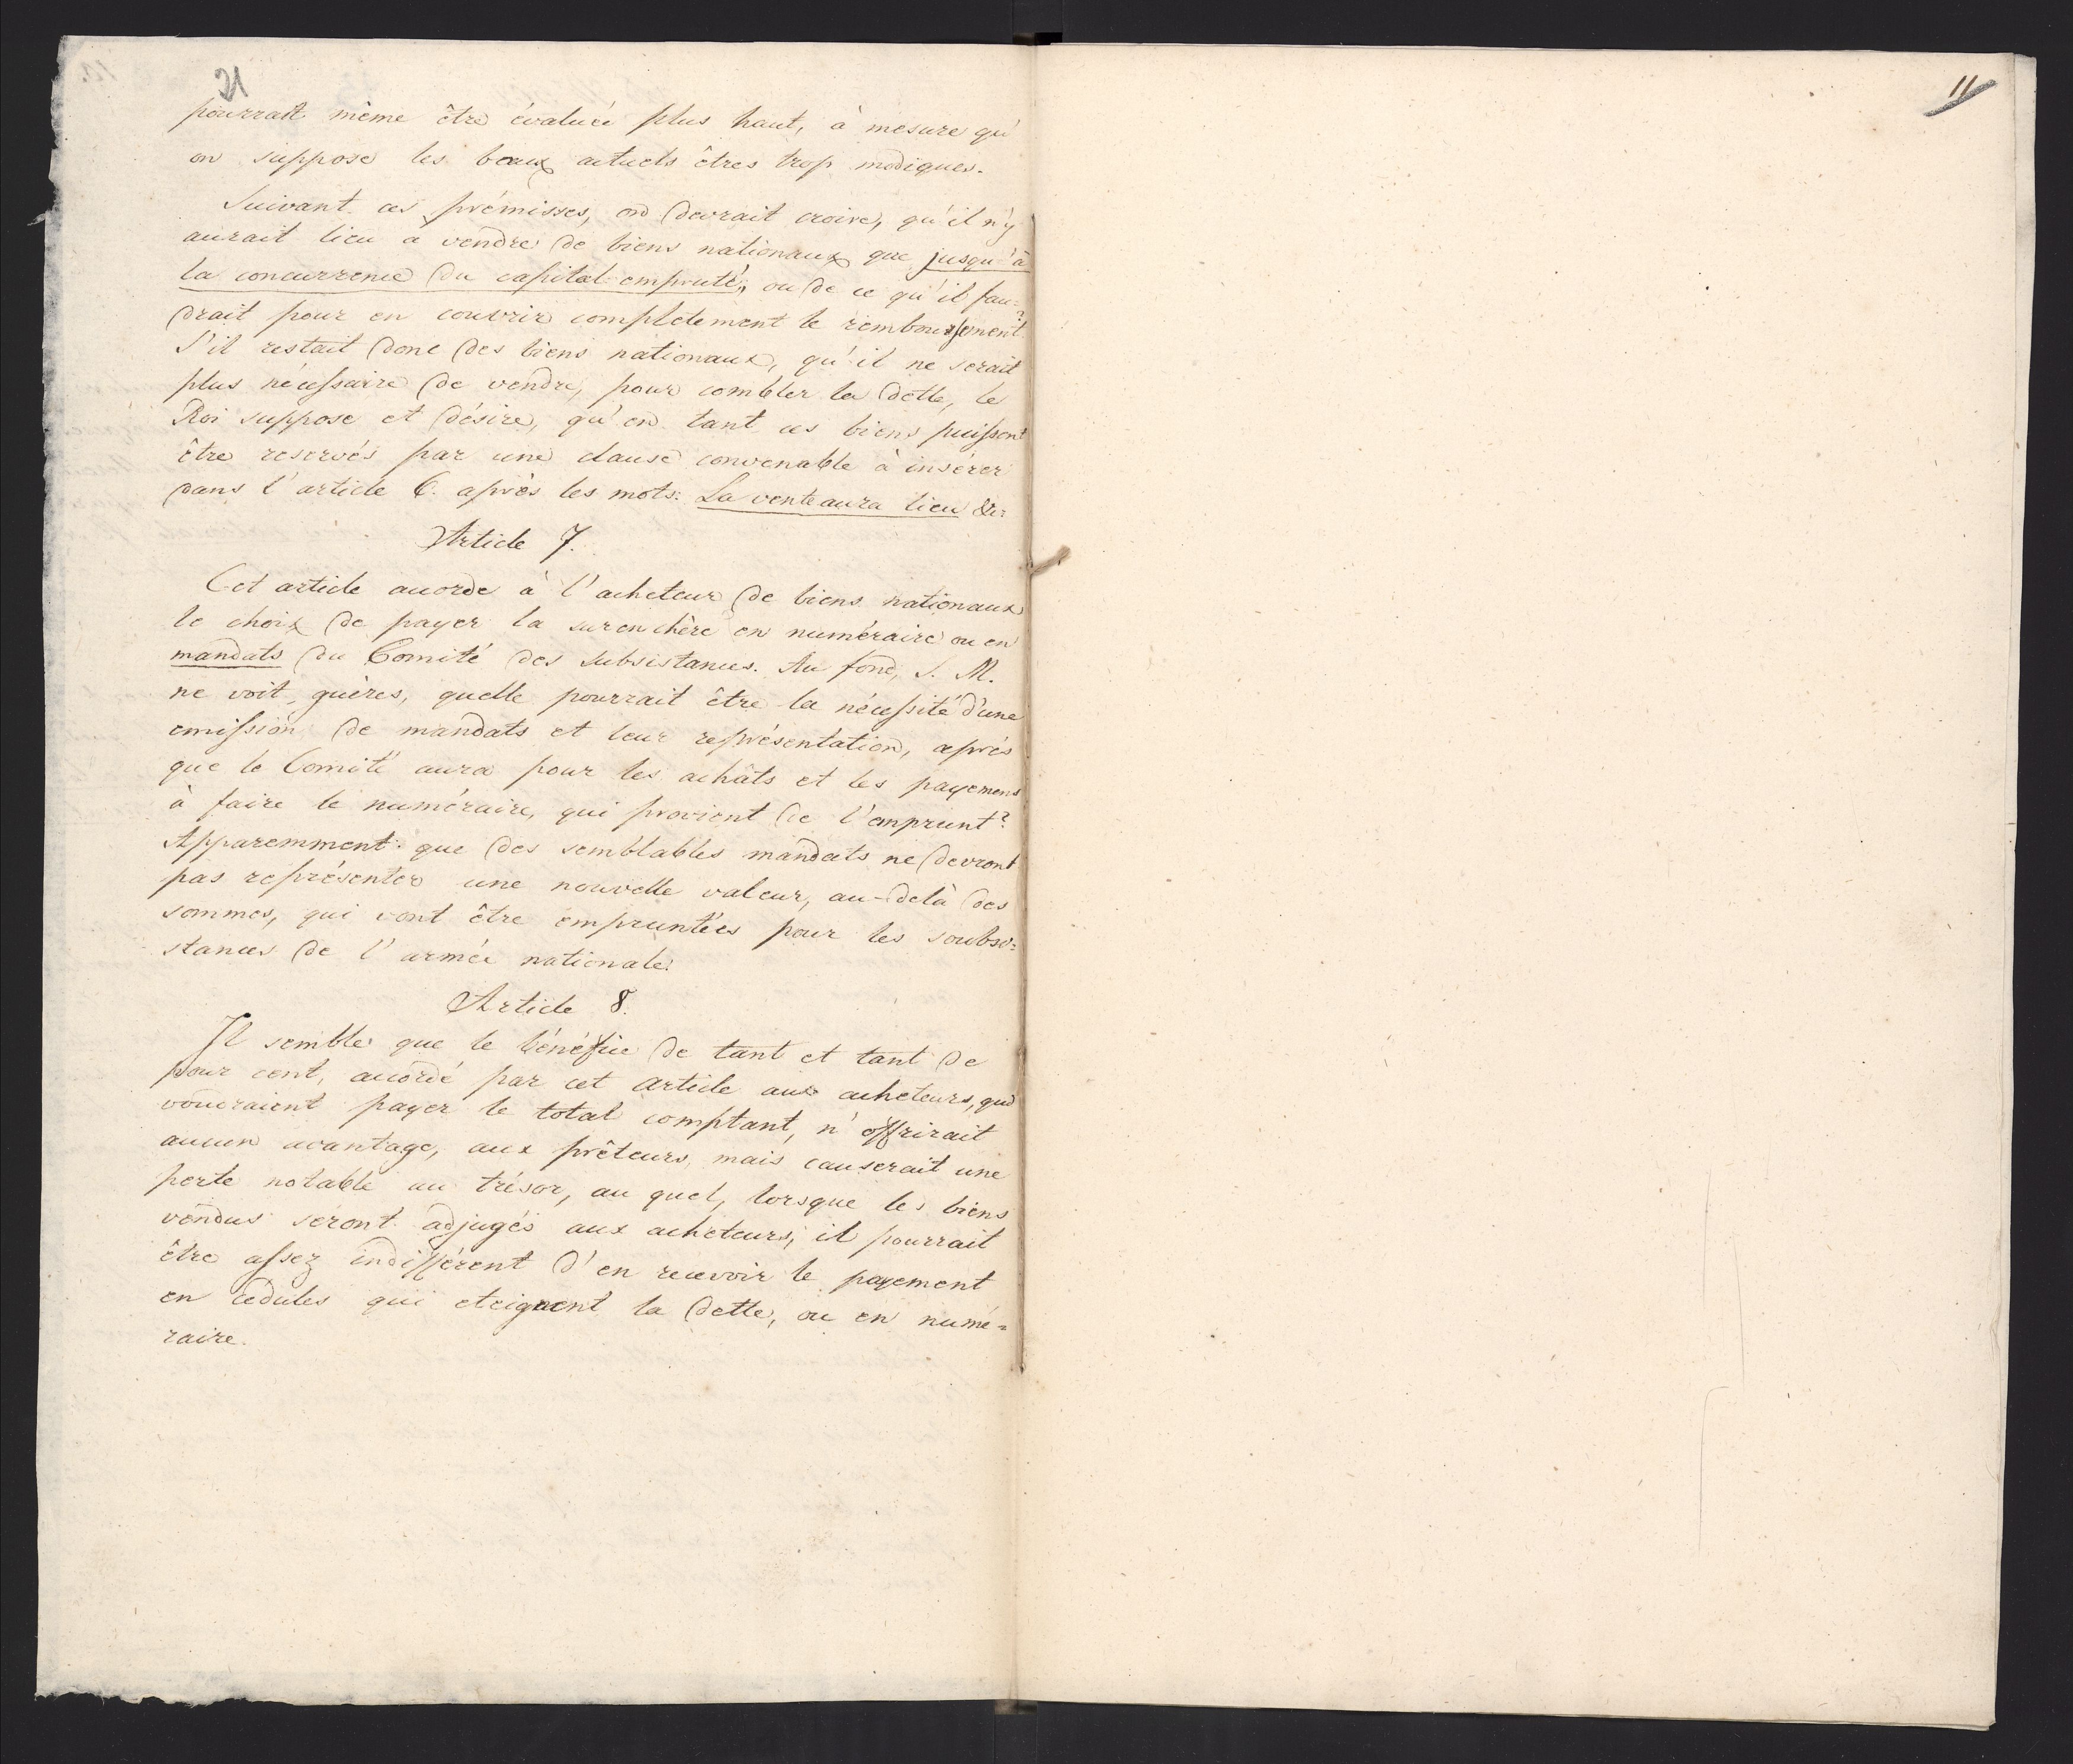 21
pourrait même être évaluée plus haut, à mesure qu'
on suppose les beaux actuels êtres trop modiques.
Suivant ces prémisses, on devrait croire, qu'il n'y
aurait lieu a vendre de biens nationaux que jusqu'à
la concurrence du capital emprunté, ou de ce qu'il fau=
drait pour en couvrir complètement le remboursement?
S'il restait donc des biens nationaux, qu'il ne serait
plus nécessaire de vendre, pour combler la dette, le
Roi suppose et désire, qu'en tant ces biens puissent
être reservés par une clause convenable à insérer
dans l'article 6. après les mots: La vente aura lieu &c:
Article 7.
Cet article accorde à l'acheteur de biens nationaux
le choix de payer la surenchère en numéraire ou en
mandats du Comité des subsistances. Au fond, S. M.
ne voit guères, quelle pourrait être la nécessité d'une
emission de mandats et leur représentation, après
que le Comité aura pour les achâts et les payemens
à faire le numéraire, qui provient de l'emprunt?
Apparemment que des semblables mandats ne devront
pas représenter une nouvelle valeur, au-delà des
sommes, qui vont être empruntées pour les soubsi=
stances de l'armée nationale.
Article 8.
Il semble que le bénéfice de tant et tant de
pour cent, accordé par cet article aux acheteurs, qui
voudraient payer le total comptant, n'offrirait
aucun avantage, aux prêteurs, mais causerait une
perte notable au trésor, au quel, lorsque les biens
vendus seront adjugés aux acheteurs, il pourrait
être assez indifférent d'en recevoir le payement
en cedules qui eteignent la dette, ou en numé=
raire.
11